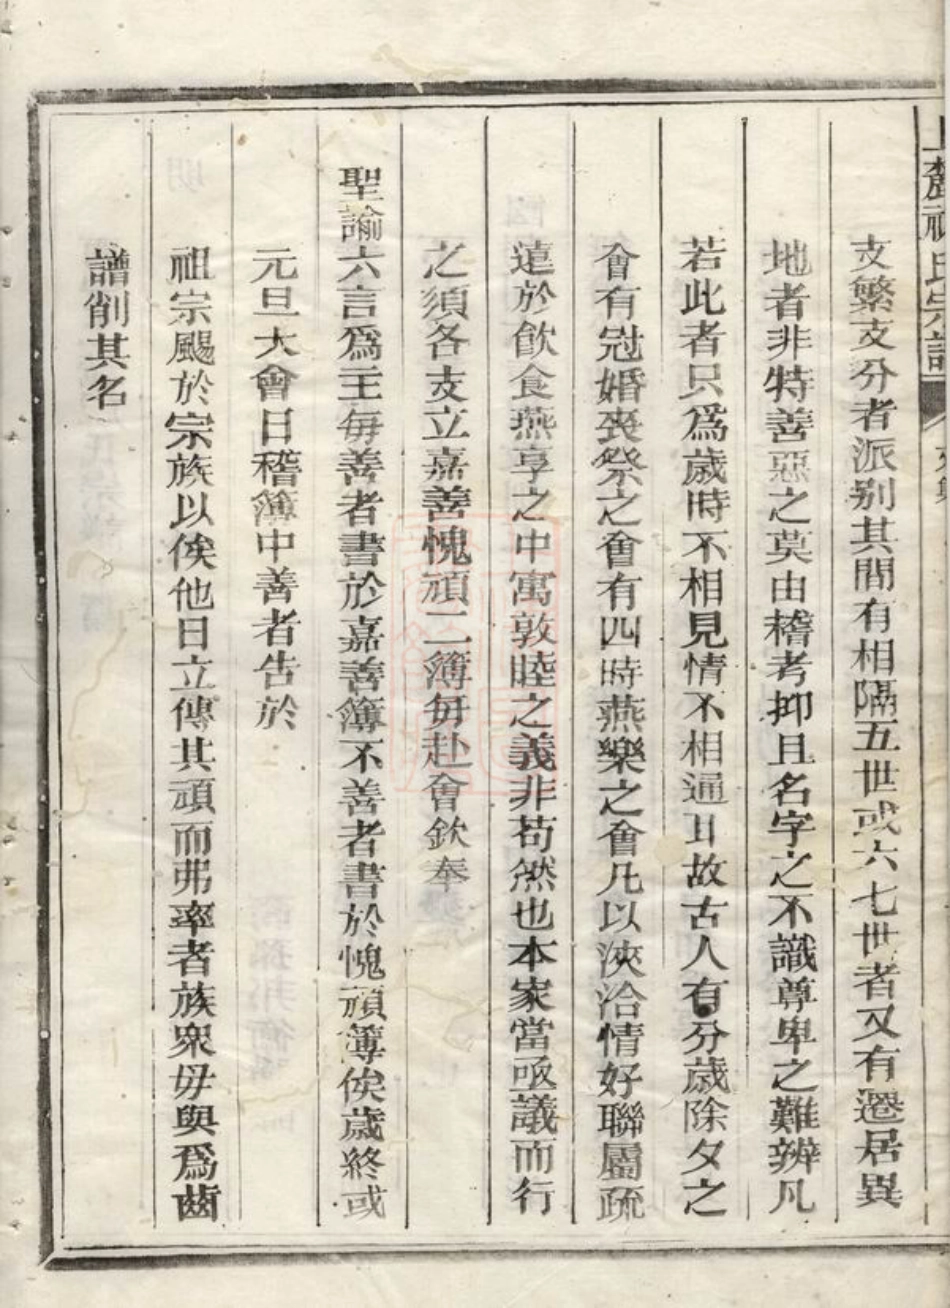 支繁支分者派别其間有相隔五世或六七世者又有遷居異
地者非特善惡之莫由稽考抑且名字之不識尊卑之難辨凡
若此者只爲歲時不相見情不相通耳故古人有分歲除夕之
會有冠婚喪祭之會有四時燕樂之會凡以浹洽情好聯屬疏
遠於飲食燕享之中寓敦睦之義非苟然也本家當亟議而行
之須各支立嘉善愧頑二簿毎赴會欽奉
聖諭六言爲主毎善者書於嘉善簿不善者書於愧頑簿俟歲終或
元旦大會日稽簿中善者告於
祖宗颺於宗族以俟他日立傳其頑而弗率者族衆毋與爲齒
譜削其名